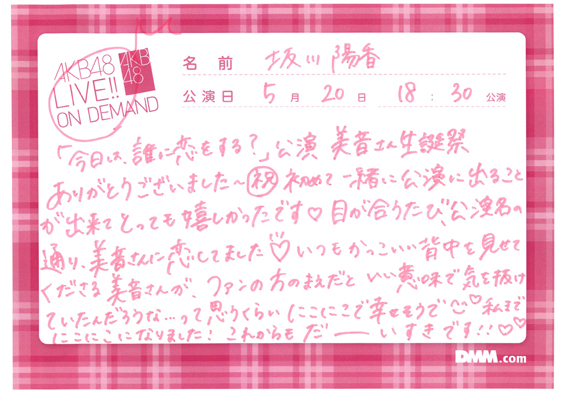 AKB48
LIVE!!
ON DEMAND
AKB
48
名前 坂川陽香
公演日 5月20日 18:30公演
「今日は、誰に恋をする?」公演 美音さん生誕祭
ありがとうございました〜㊗初めて一緒に公演に出ること
が出来てとっても嬉しかったです♡目が合うたび、公演名の
通り、美音さんに恋してました♡いつもかっこいい背中を見せて
くださる美音さんが、ファンの方のまえだといい意味で気を抜け
ていたんだろうな...って思うくらいにこにこで幸せそうで☺♡私まで
にこにこになりました!これからもだーーいすきです!!♡♡
DMM.com